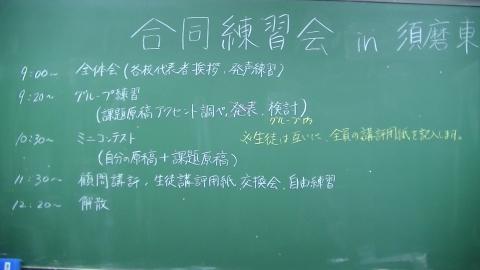 合同練習会 in 須磨東
9:00〜 全体会(各校代表者挨拶、発声練習)
9:20〜 グループ練習
(課題原稿アクセント調べ、発表、検討)
グループ内
10:30〜 ミニコンテスト ※生徒は互いに、全員の講評用紙を記入します。
(自分の原稿+課題原稿)
11:30〜 顧問講評、生徒講評用紙交換会、自由練習
12:20〜 解散